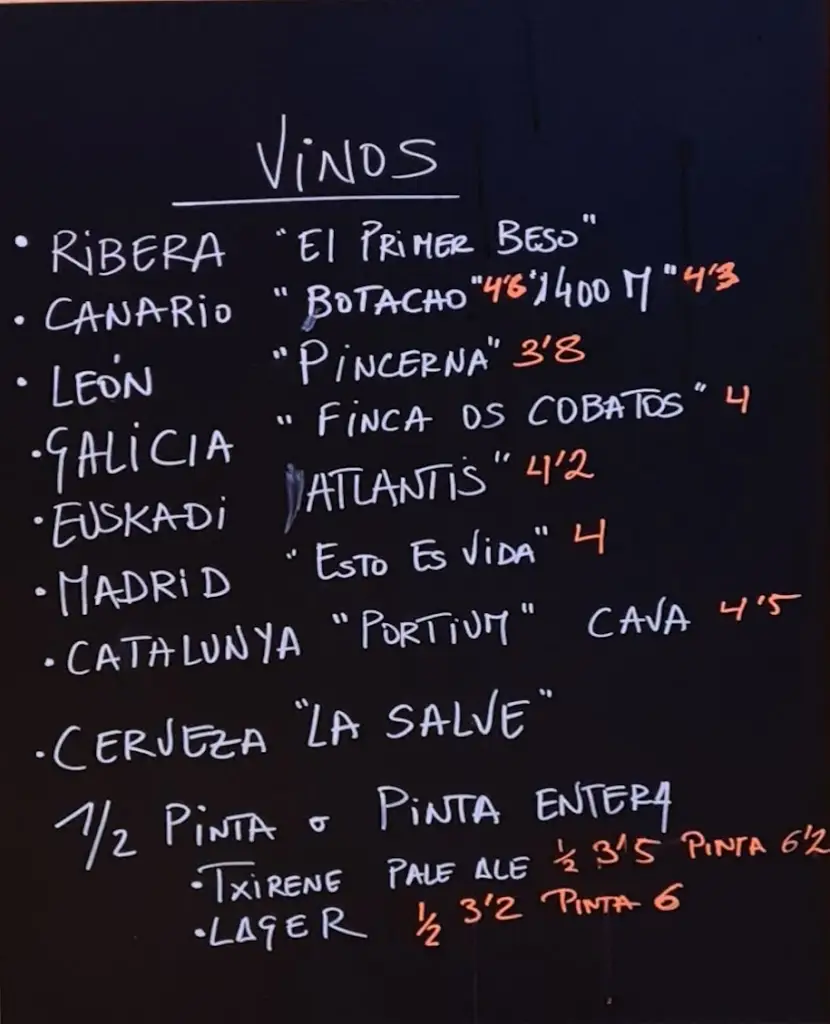 VINOS
• RIBERA "El PRIMER BESO"
• CANARIO "BOTACHO" 4'6 "1400 M" 4'3
• LEÓN "PINCERNA" 3'8
• GALICIA "FINCA OS COBATOS" 4
• EUSKADI ATLANTIS" 4'2
• MADRID "ESTO ES VIDA" 4
• CATALUNYA "PORTIUM" CAVA 4'5
• CERVEZA "LA SALVE"
1/2 PINTA o PINTA ENTERA
• TXIRENE PALE ALE 1/2 3'5 PINTA 6'2
• LAGER 1/2 3'2 PINTA 6